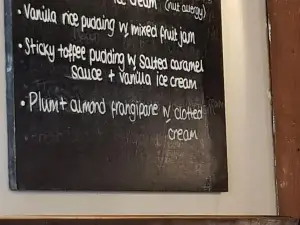 ice cream (nut allergy)
• Vanilla rice pudding w mixed fruit jam
• Sticky toffee pudding w salted caramel
sauce + vanilla ice cream
• Plum + almond frangipane w clotted
cream